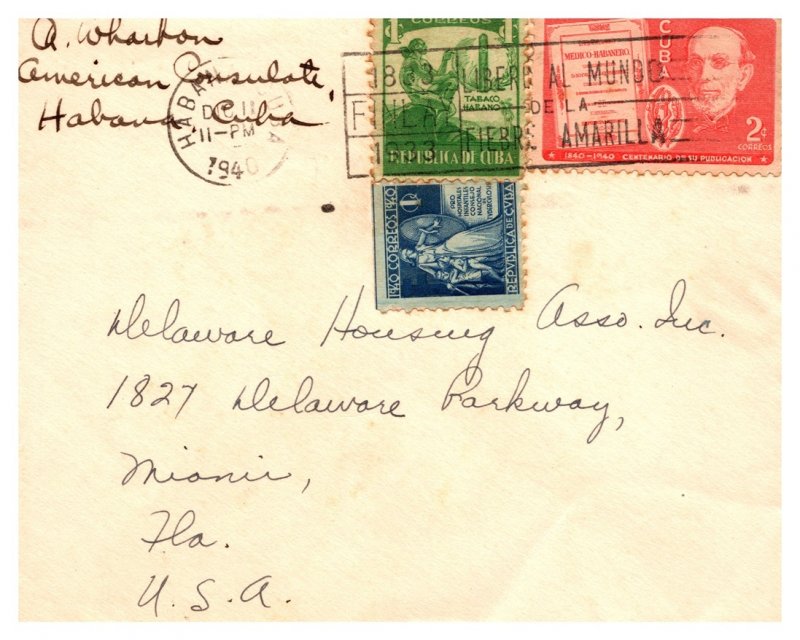 A. Wharton
American Consulate,
Habana, Cuba
HABANA
DEC 11
11-PM
1940
CORREOS
TABACO
HABANO
REPUBLICA DE CUBA
1833 LIBERO AL MUNDO
FINLAY DE LA
1933 FIEBRE AMARILLA
MEDICO-HABANERO
CUBA
2¢
CORREOS
1840-1940 CENTENARIO DE SU PUBLICACION
1940 CORREOS 1940
PRO
HOSPITALES
INFANTILES
CONSEJO
NACIONAL
DE
TUBERCULOSIS
REPVBLICA DE CVBA
Delaware Housing Asso. Inc.
1827 Delaware Parkway,
Miami,
Fla.
U. S. A.